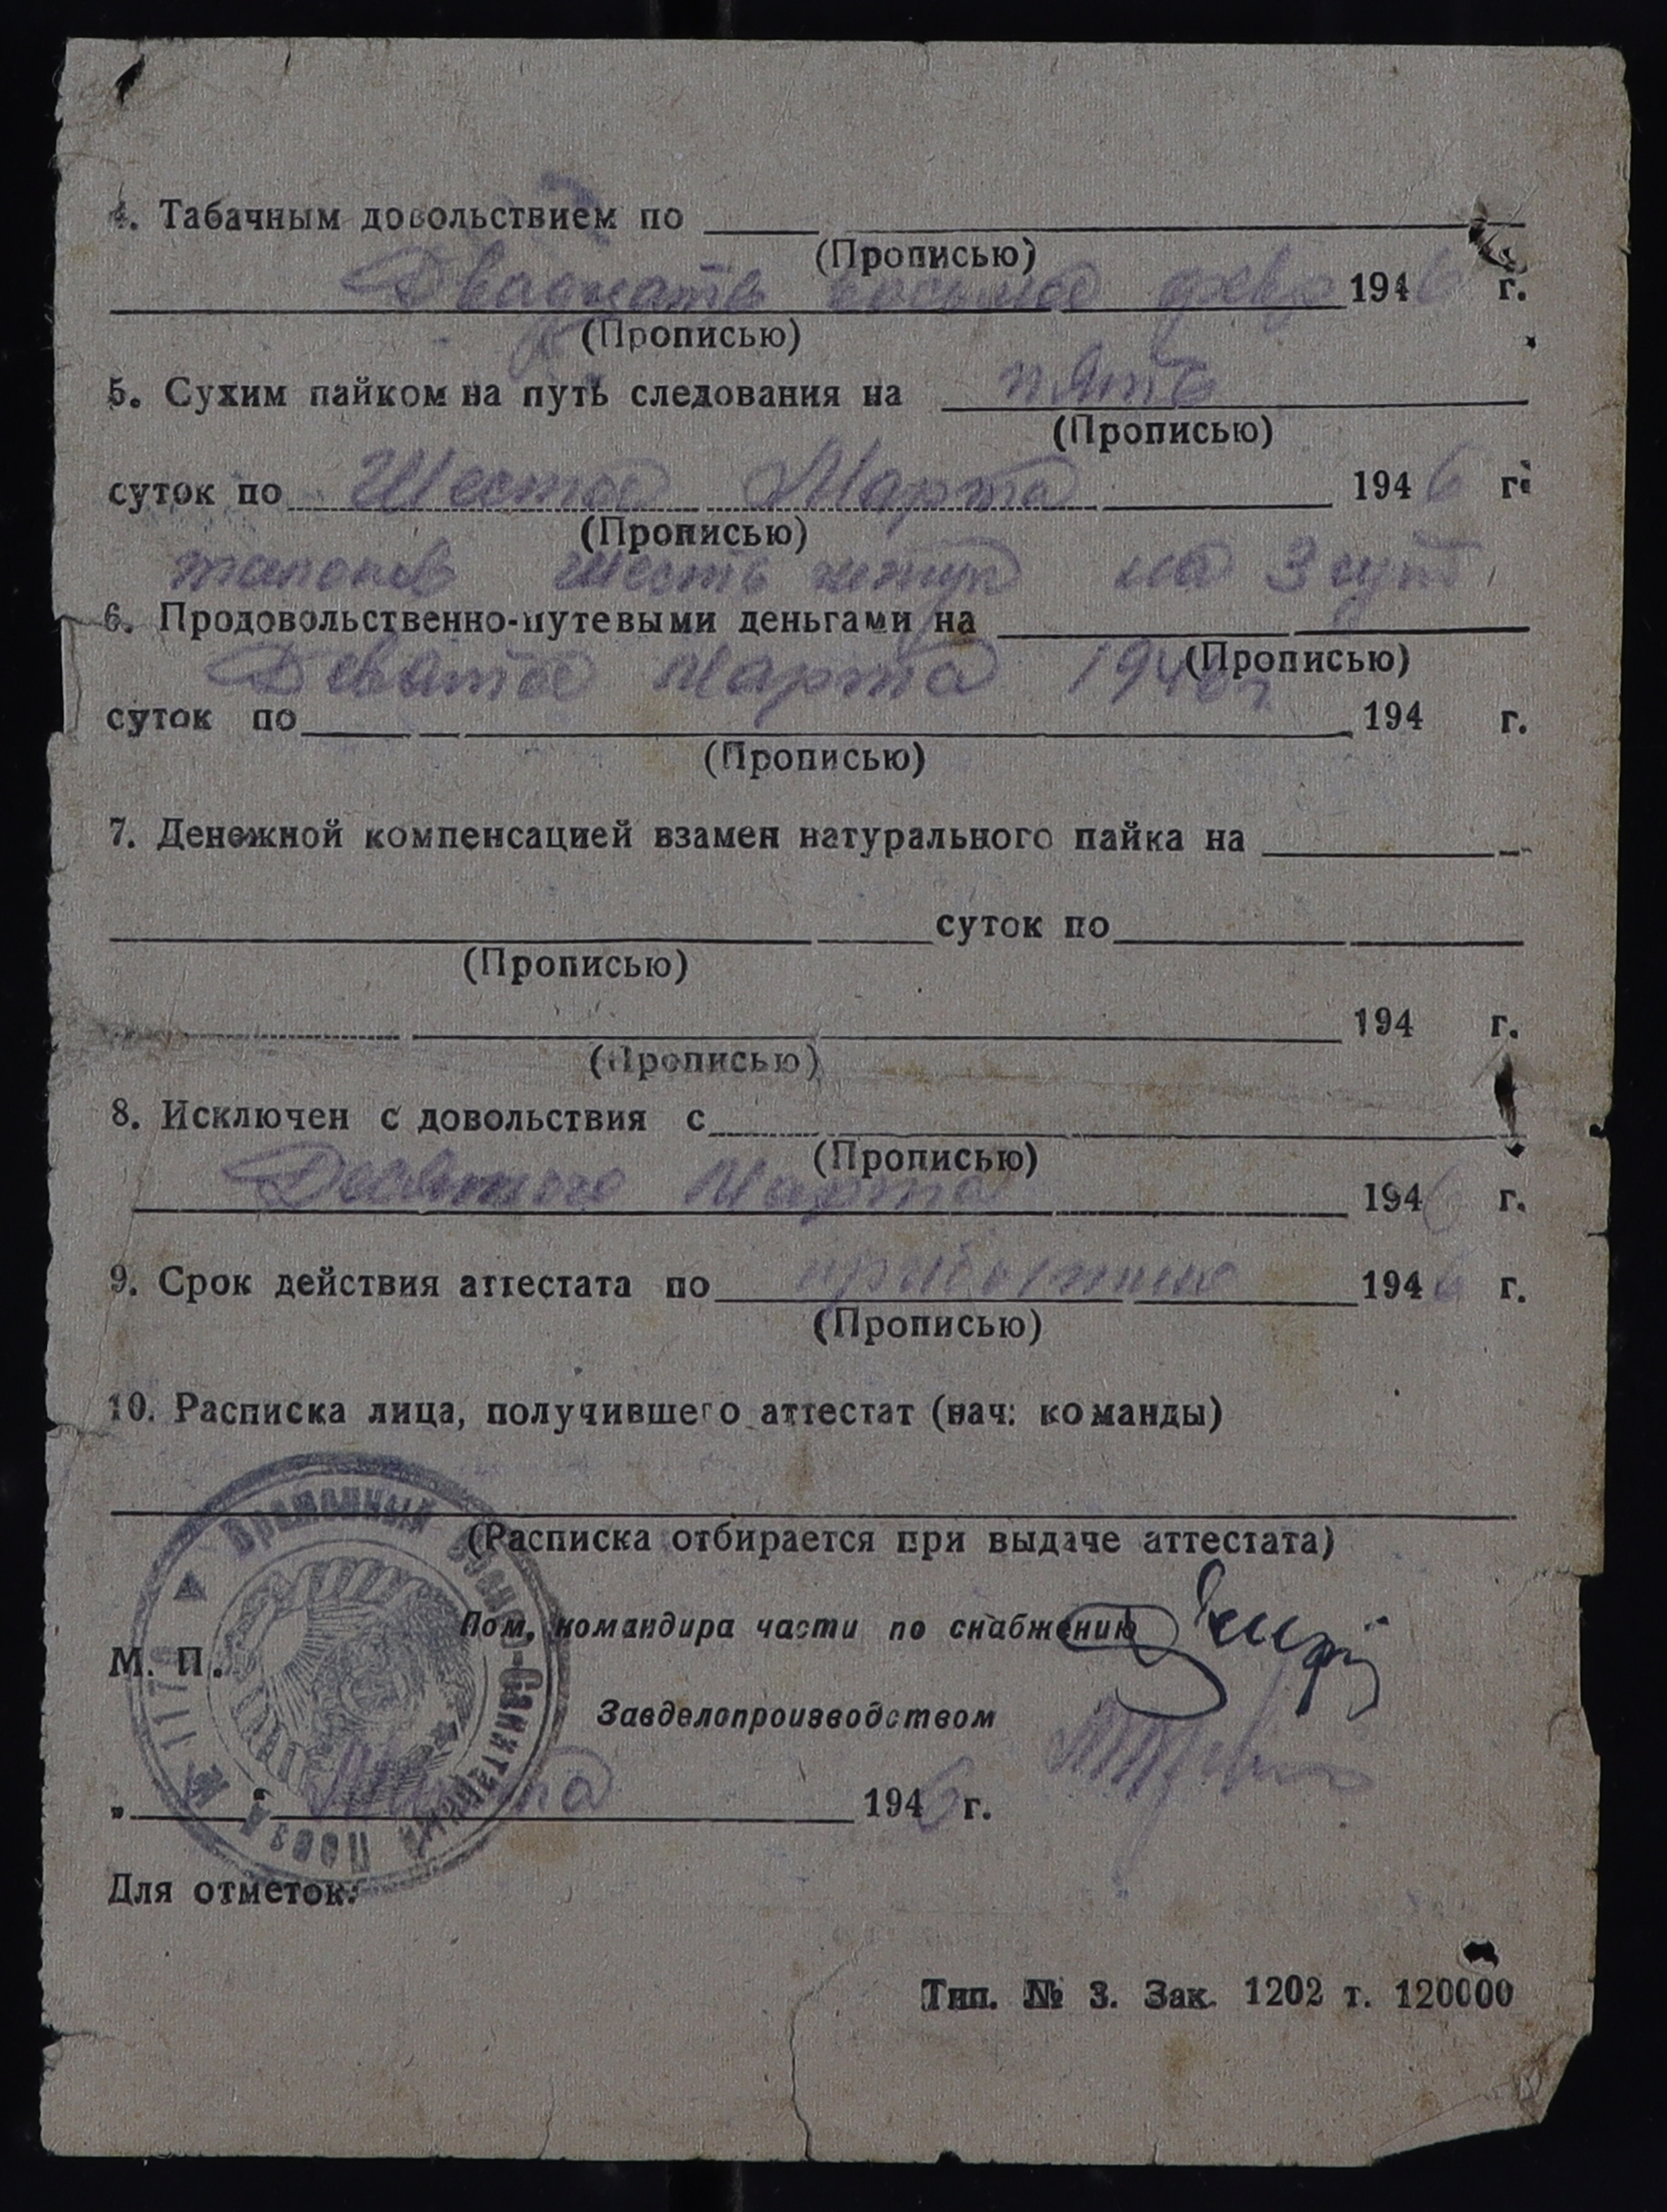 4. Табачным довольствием по
(Прописью)
Двадцать восьмое февр 1946 г.
(Прописью)
5. Сухим пайком на путь следования на пять
(Прописью)
суток по Шестое Марта 1946 г.
(Прописью)
талонов шесть штук на 3 сут
6. Продовольственно-путевыми деньгами на
(Прописью)
Девятое Марта 1946 г
суток по 194 г.
(Прописью)
7. Денежной компенсацией взамен натурального пайка на
суток по
(Прописью)
194 г.
(Прописью)
8. Исключен с довольствия с
(Прописью)
Десятого Марта 1946 г.
9. Срок действия аттестата по прибытию 1946 г.
(Прописью)
10. Расписка лица, получившего аттестат (нач: команды)
(Расписка отбирается при выдаче аттестата)
Пом. командира части по снабжению
М. П.
Временный Военно-Санитарный Поезд №
Завделопроизводством
„ “ Марта 1946 г.
Для отметок:
Тип. № 3. Зак. 1202 т. 120000